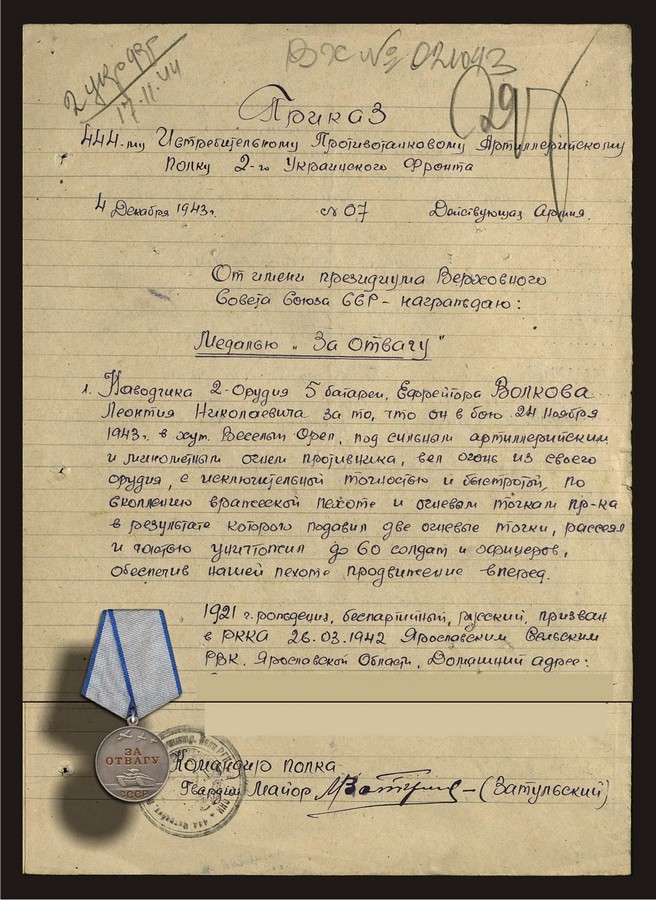 ВХ № 021093
2 укр 937
17.11.44
297
Приказ
444-му Истребительному Противотанковому Артиллерийскому
полку 2-го Украинского Фронта
4 Декабря 1943г. № 07 Действующая Армия.
От имени президиума Верховного
Совета Союза ССР - награждаю:
Медалью „За Отвагу"
1. Наводчика 2-Орудия 5 батареи, Ефрейтора Волкова
Леонтия Николаевича за то, что он в бою 24 ноября
1943г. в хут. Веселый Орел, под сильным артиллерийским
и минометным огнем противника, вел огонь из своего
орудия, с исключительной точностью и быстротой, по
скоплению вражеской пехоте и огневым точкам пр-ка
в результате которого подавил две огневые точки, рассеял
и частью уничтожил до 60 солдат и офицеров,
обеспечив нашей пехоте продвижение вперед.
1921 г. рождения, беспартийный, русский, призван
в РККА 26.03.1942 Ярославским Сельским
РВК, Ярославской Области, Домашний адрес:
ЗА
ОТВАГУ
СССР
Командир полка
Гвардии Майор (Затульский)